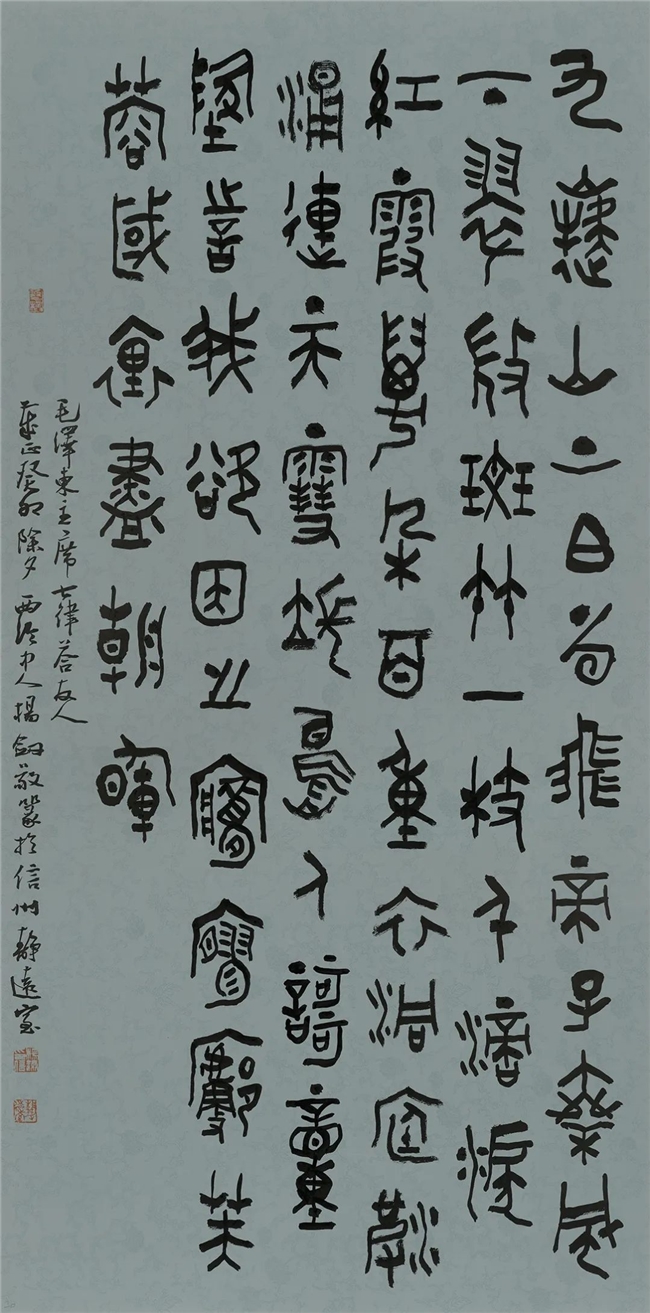 九嶷山上白云飛帝子乘風
下翠微斑竹一枝千滴淚
紅霞萬朵百重衣洞庭波
涌連天雪長島人謌動
地詩我欲因之夢寥廓芙
蓉國裏盡朝暉
毛澤東主席七律答友人
歲在癸卯除夕西泠中人楊劍敬篆於信州靜遠室